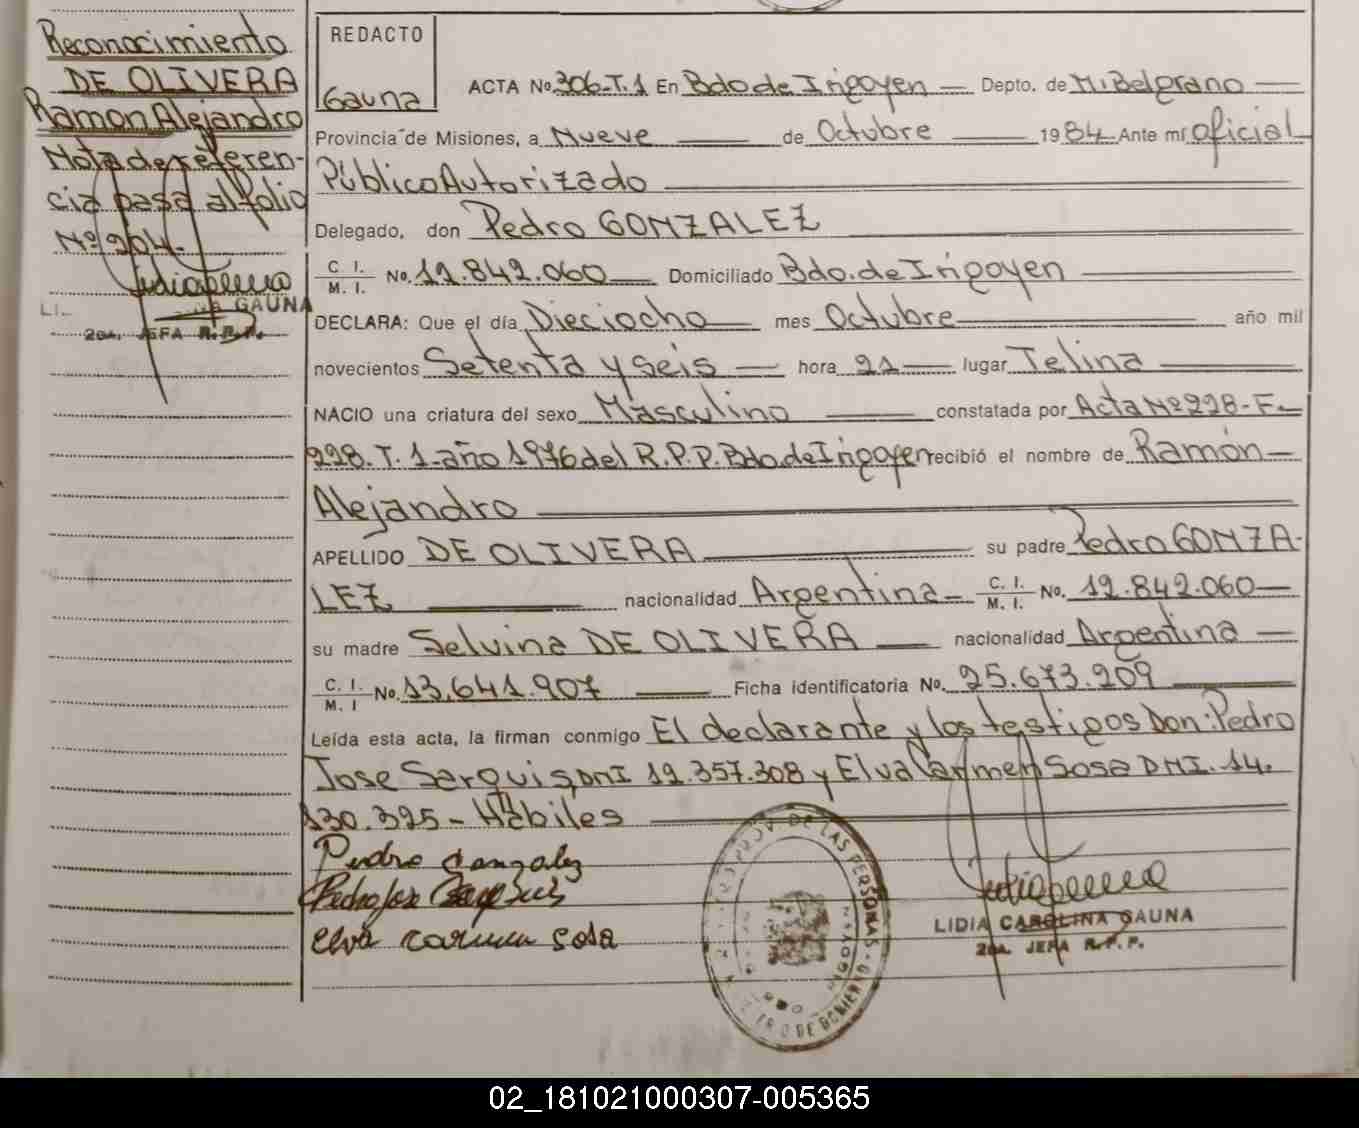 Reconocimiento
DE OLIVERA
Ramon Alejandro
Nota de referen-
cia pasa al folio
Nº 204.-
GAUNA
2da. JEFA R.P.P.
REDACTO
Gauna
ACTA No. 306-T.1 En Bdo de Irigoyen — Depto. de M. Belgrano —
Provincia de Misiones, a Nueve — de Octubre — 1984 Ante mí oficial
Público Autorizado —
Delegado, don Pedro GONZALEZ
C. I. / M. I. No. 12.842.060 — Domiciliado Bdo. de Irigoyen —
DECLARA: Que el día Dieciocho — mes Octubre — año mil
novecientos Setenta y seis — hora 21 — lugar Telina —
NACIO una criatura del sexo Masculino — constatada por Acta Nº 228-F-
228. T. 1-año 1976 del R.P.P. Bdo. de Irigoyen recibió el nombre de Ramón —
Alejandro —
APELLIDO DE OLIVERA — su padre Pedro GONZA-
LEZ — nacionalidad Argentina — C. I. / M. I. No. 12.842.060 —
su madre Selvina DE OLIVERA — nacionalidad Argentina —
C. I. / M. I No. 13.641.907 — Ficha identificatoria No. 25.673.209 —
Leída esta acta, la firman conmigo El declarante y los testigos Don: Pedro
Jose Sarquis, DNI 12.357.308 y Elva Carmen Sosa DNI. 14.
130.325 - Hábiles —
Pedro Gonzalez
Pedro Jose
Elva Carmen Sosa
PROV. DE LAS PERSONAS
LIDIA CAROLINA GAUNA
2da. JEFA R.P.P.
02_181021000307-005365